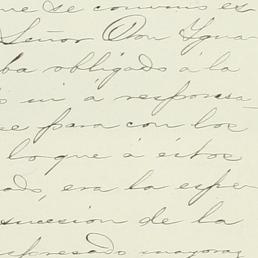 ue se convino es
Señor Don Ygna
ba obligado á la
s ni á responsa
se para con los
lo que á éstos
ado, era la espe
sucesion de la
xpresado mayoraz